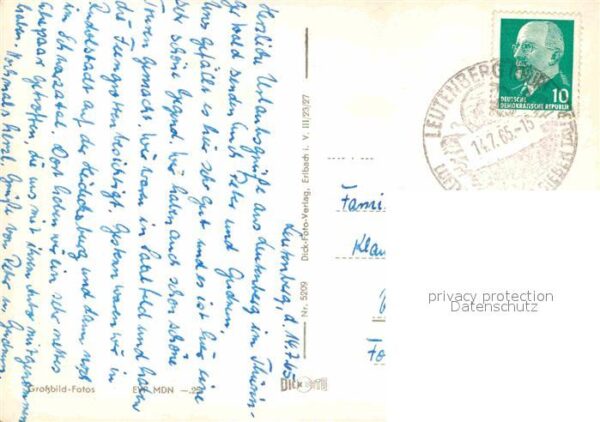 Leutenberg, d. 14.7.65
Herzliche Urlaubsgrüße aus Leutenberg im Thürin-
ger Wald senden Euch Peter und Gudrun.
Uns gefällt es hier sehr gut und es ist hier eine
sehr schöne Gegend. Wir haben auch schon schöne
Touren gemacht. Wir waren in Saalfeld und haben
die Feengrotten besichtigt. Gestern waren wir in
Rudolstadt auf der Heidecksburg und dann noch
im Schwarzatal. Dort haben wir ein sehr nettes
Ehepaar getroffen, die uns mit ihrem Auto mitgenommen
haben. Nochmals herzl. Grüße von Peter u. Gudrun.
Großbild-Fotos
EVP MDN —.25
Nr. 5209
Dick-Foto-Verlag, Erlbach i. V. III/23/27
DICK
FOTO
DEUTSCHE
DEMOKRATISCHE REPUBLIK
10
LEUTENBERG
14.7.65-15
Famil
Klau
privacy protection
Datenschutz